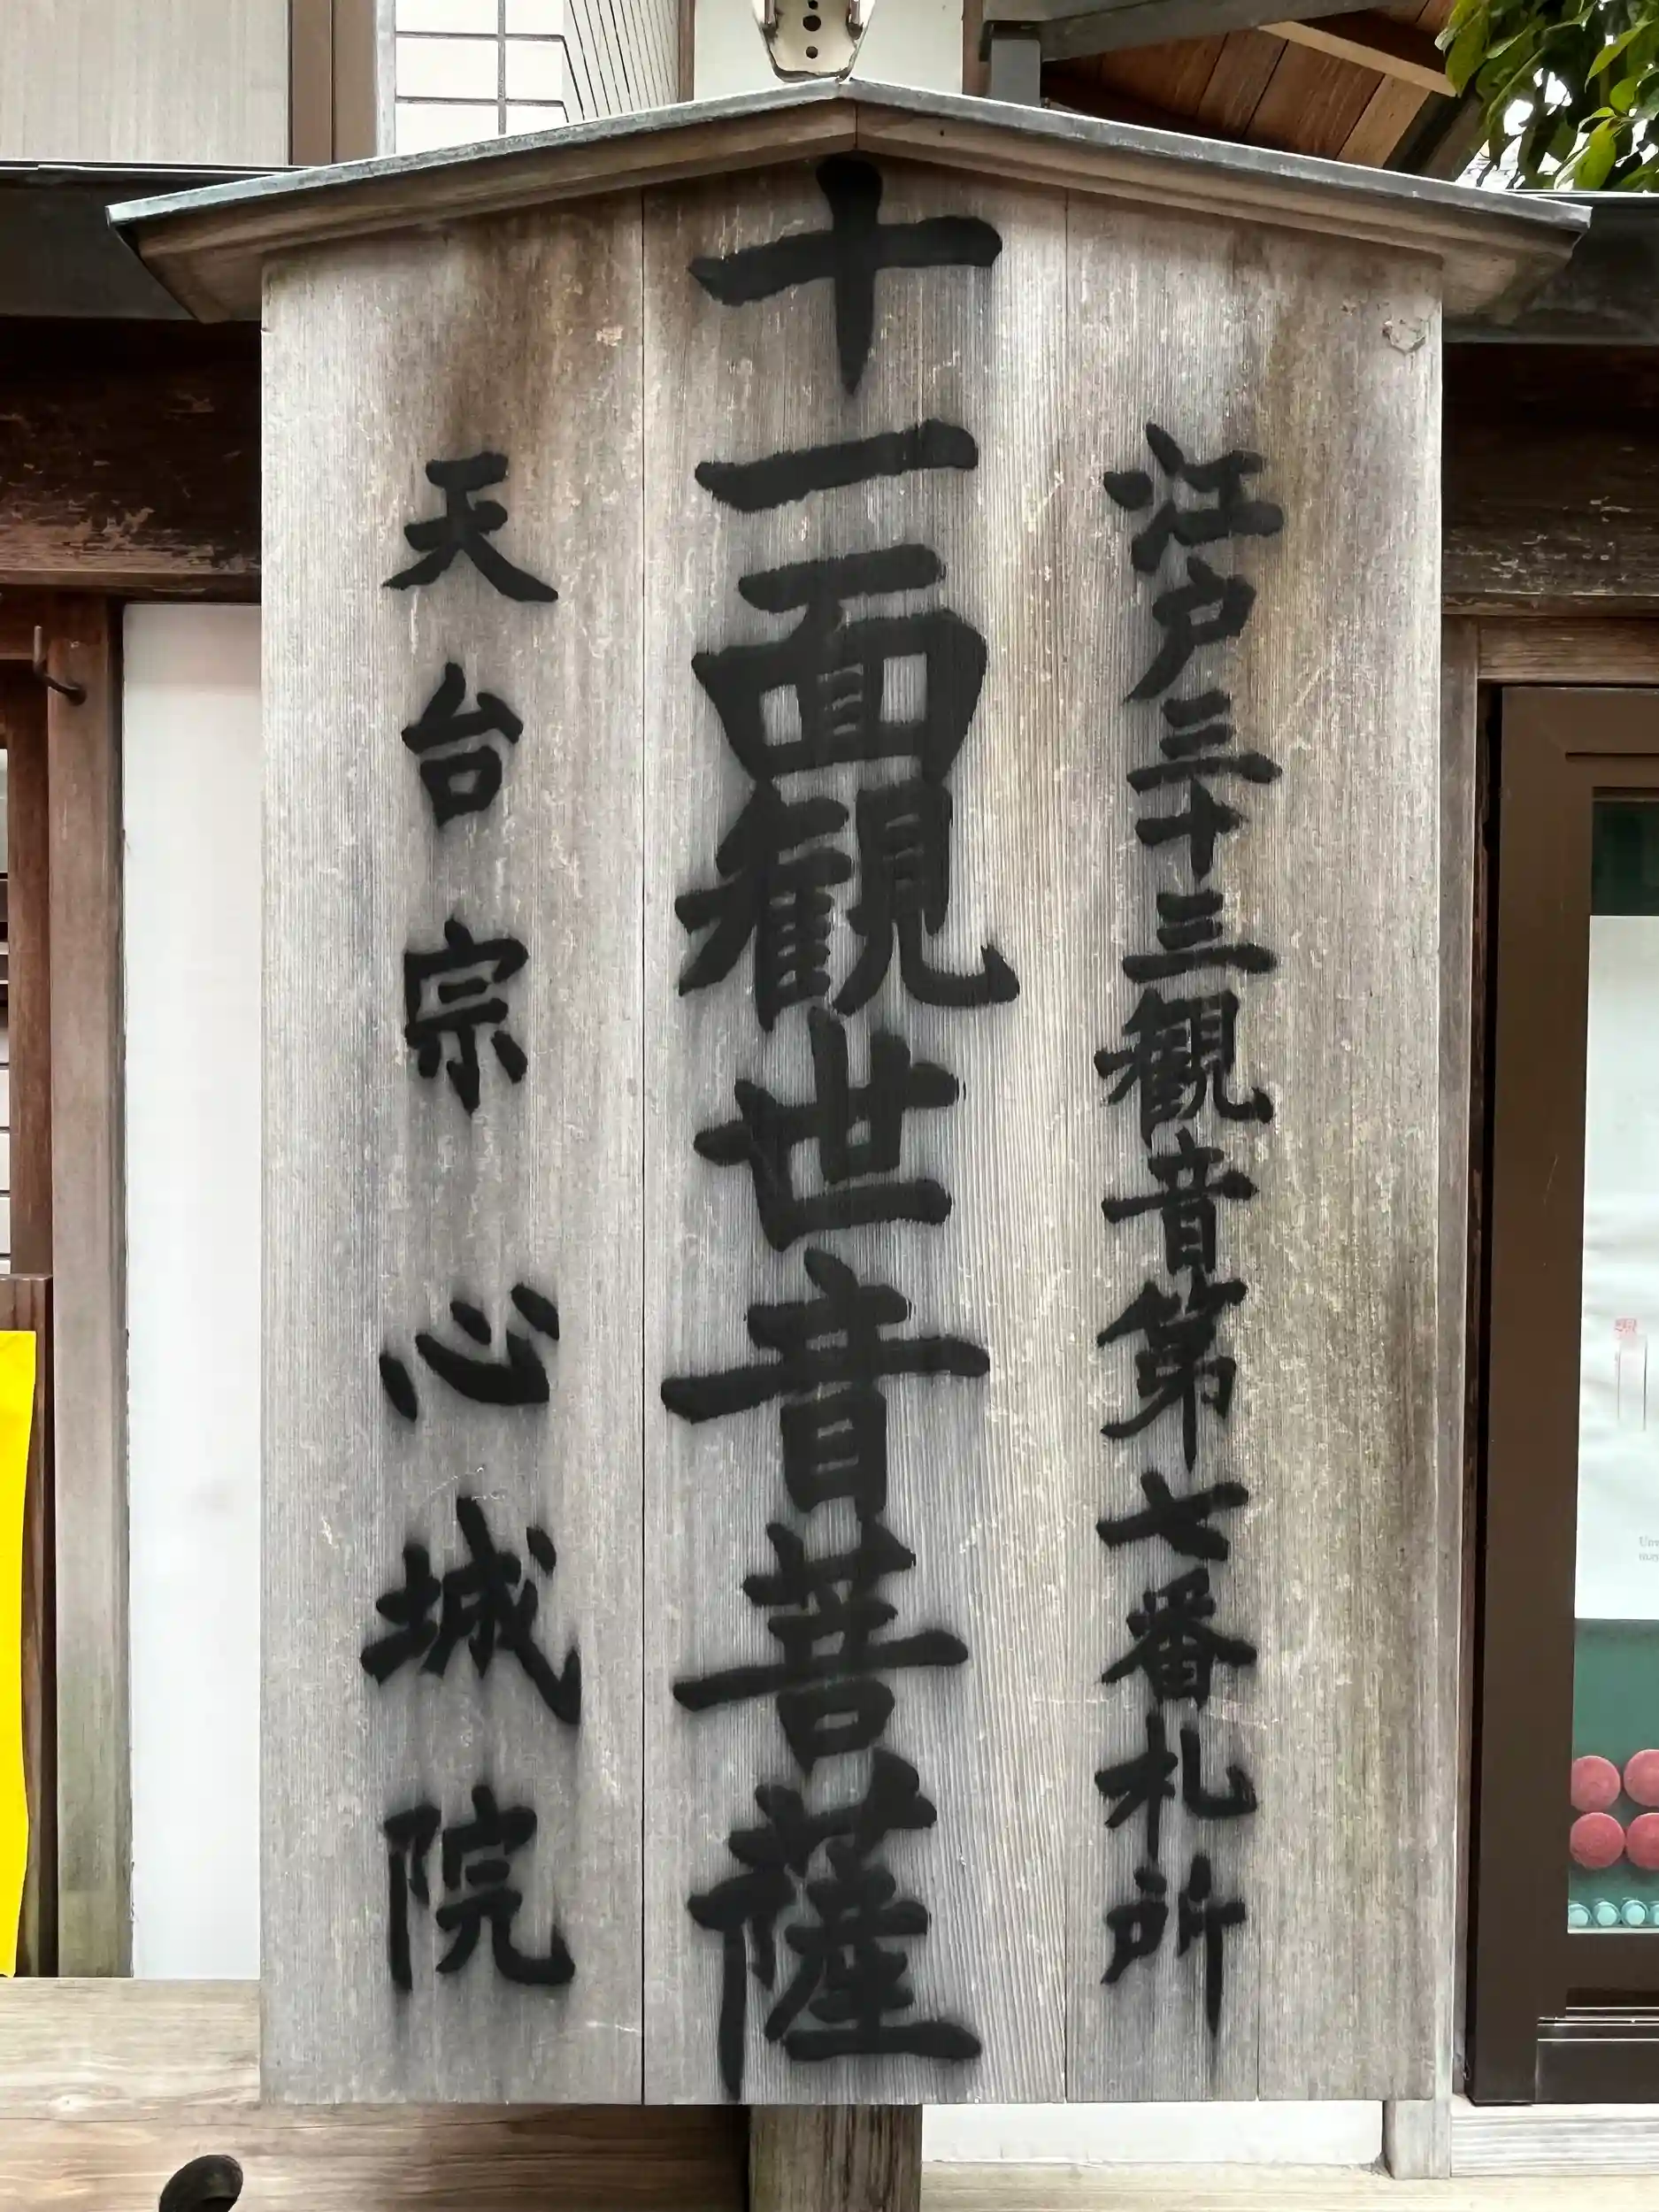 江戸三十三観音第七番札所
十一面観世音菩薩
天台宗 心城院